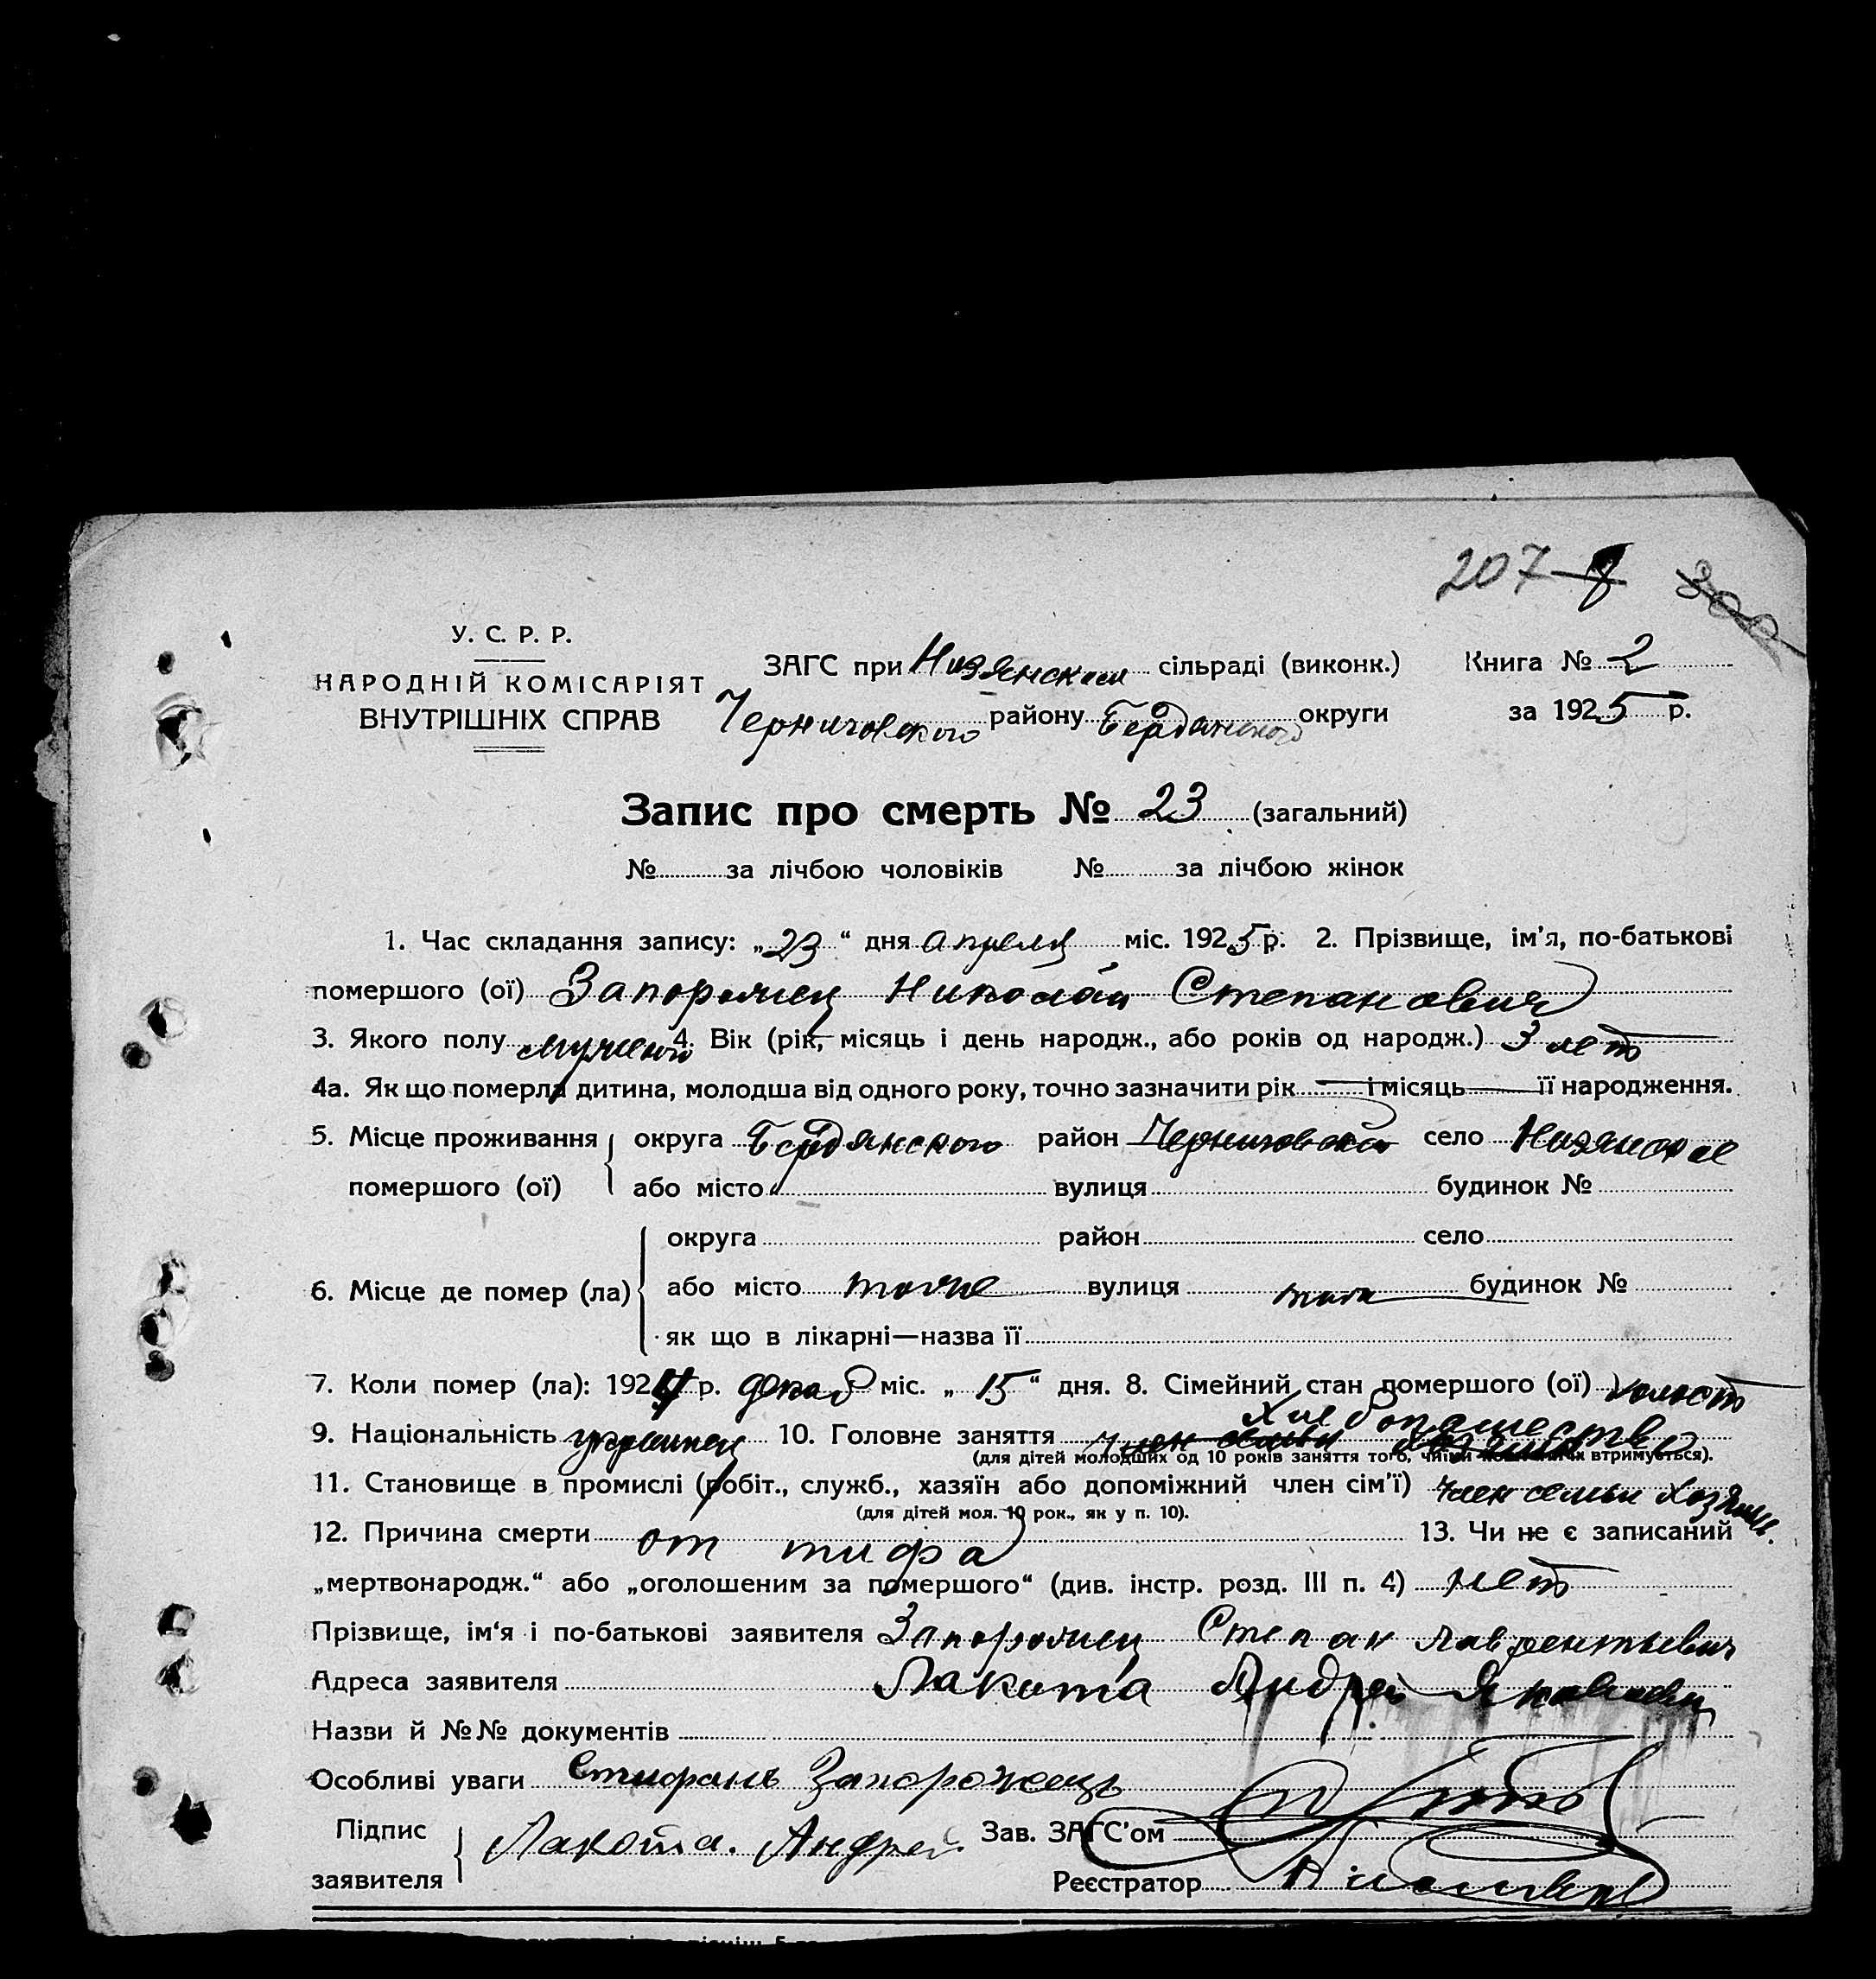 207
300
У. С. Р. Р.
НАРОДНІЙ КОМІСАРІЯТ
ВНУТРІШНІХ СПРАВ
ЗАГС при Низянском сільраді (виконк.) Книга № 2
Черниговского району Бердянского округи за 1925 р.
Запис про смерть № 23 (загальний)
№ за лічбою чоловіків № за лічбою жінок
1. Час складання запису: „23“ дня апреля міс. 1925 р. 2. Прізвище, ім'я, по-батькові
помершого (ої) Запорожец Николай Степанович
3. Якого полу мужено 4. Вік (рік, місяць і день народж., або років од народж.) 3 лет
4а. Як що померла дитина, молодша від одного року, точно зазначити рік — і місяць — її народження.
5. Місце проживання округа Бердянского район Черниговский село Низянское
помершого (ої) або місто вулиця будинок №
округа район село
6. Місце де помер (ла) або місто тоже вулиця будинок №
як що в лікарні—назва її
7. Коли помер (ла): 1924 р. декаб міс. „15“ дня. 8. Сімейний стан помершого (ої) холост
9. Національність украинец 10. Головне заняття член семьи хлебопашество
(для дітей молодших од 10 років заняття того, чиїми коштами їх втримується).
11. Становище в промислі (робіт., служб., хазяїн або допоміжний член сім'ї) член семьи хозяин.
(для дітей мол. 10 рок., як у п. 10).
12. Причина смерти от тифа 13. Чи не є записаний
„мертвонародж.“ або „оголошеним за помершого“ (див. інстр. розд. III п. 4) нет
Прізвище, ім'я і по-батькові заявителя Запорожец Степан Лаврентьевич
Адреса заявителя Лакота Андрей Яковлевич
Назви й №№ документів
Особливі уваги Стифанъ Запорожецъ
Підпис
заявителя Лакота. Андрей.
Зав. ЗАГС'ом
Реєстратор